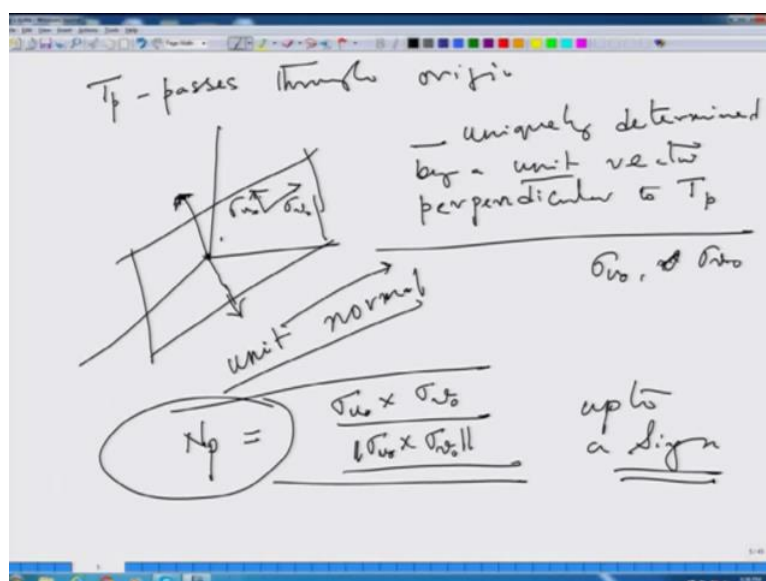 T_p - passes through origin
— uniquely determined
by a unit vector
perpendicular to T_p
σ_{u_0} σ_{v_0}
σ_{u_0}, σ_{v_0}
unit normal
N_p = σ_{u_0} × σ_{v_0} / ||σ_{u_0} × σ_{v_0}||
upto
a sign